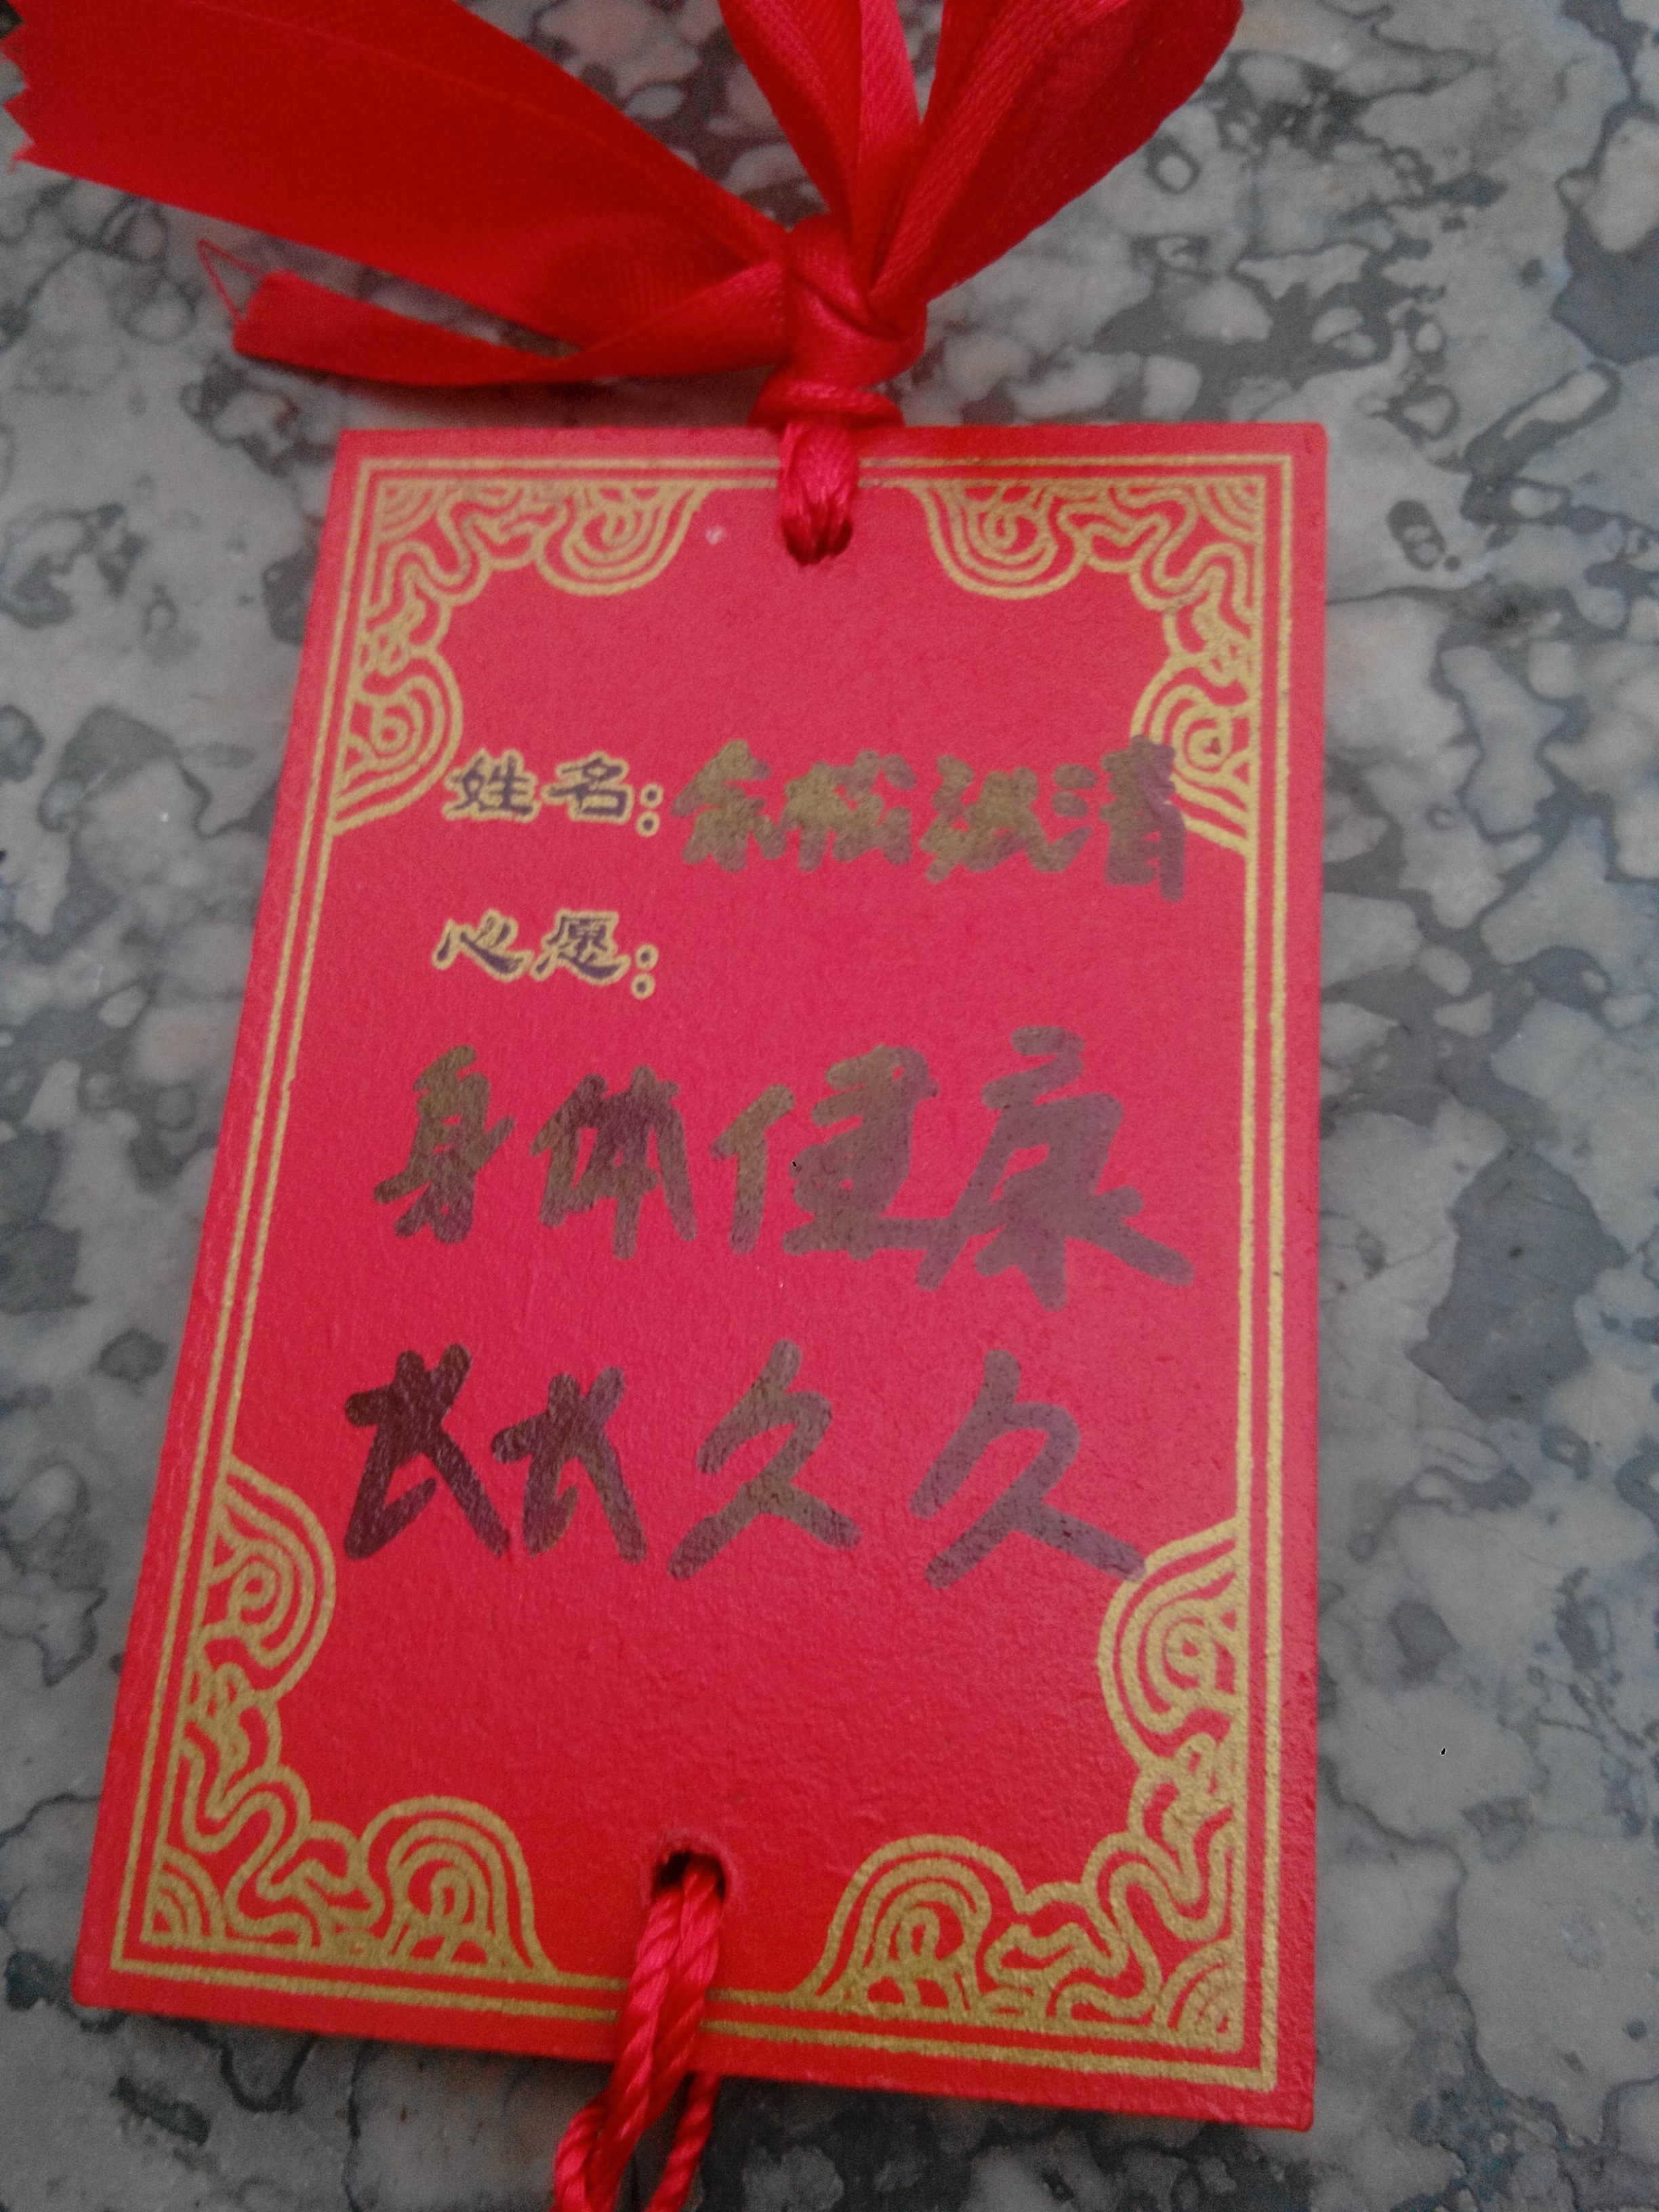 姓名: 清
心愿:
身体健康
长长久久